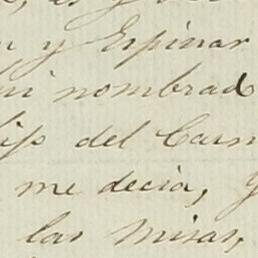 y Espinar
mi nombrado
del Carm
me decia, y
las misas,